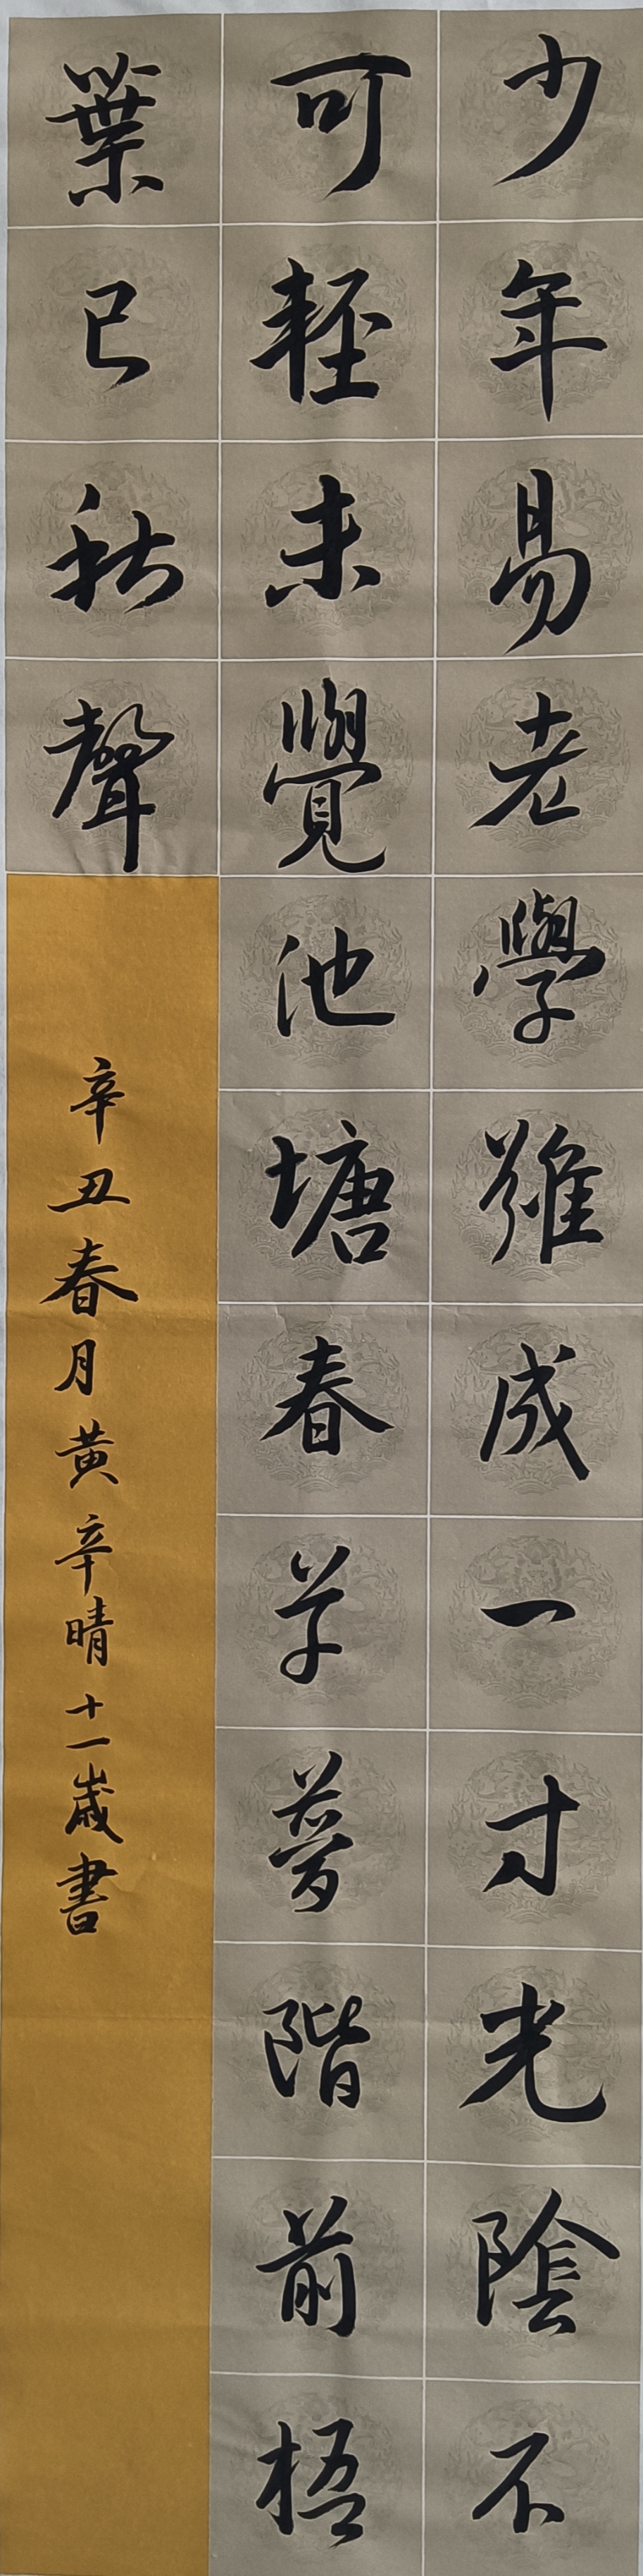 少年易老學難成一寸光陰不
可輕未覺池塘春草夢階前梧
葉已秋聲
辛丑春月黄辛晴十一歲書